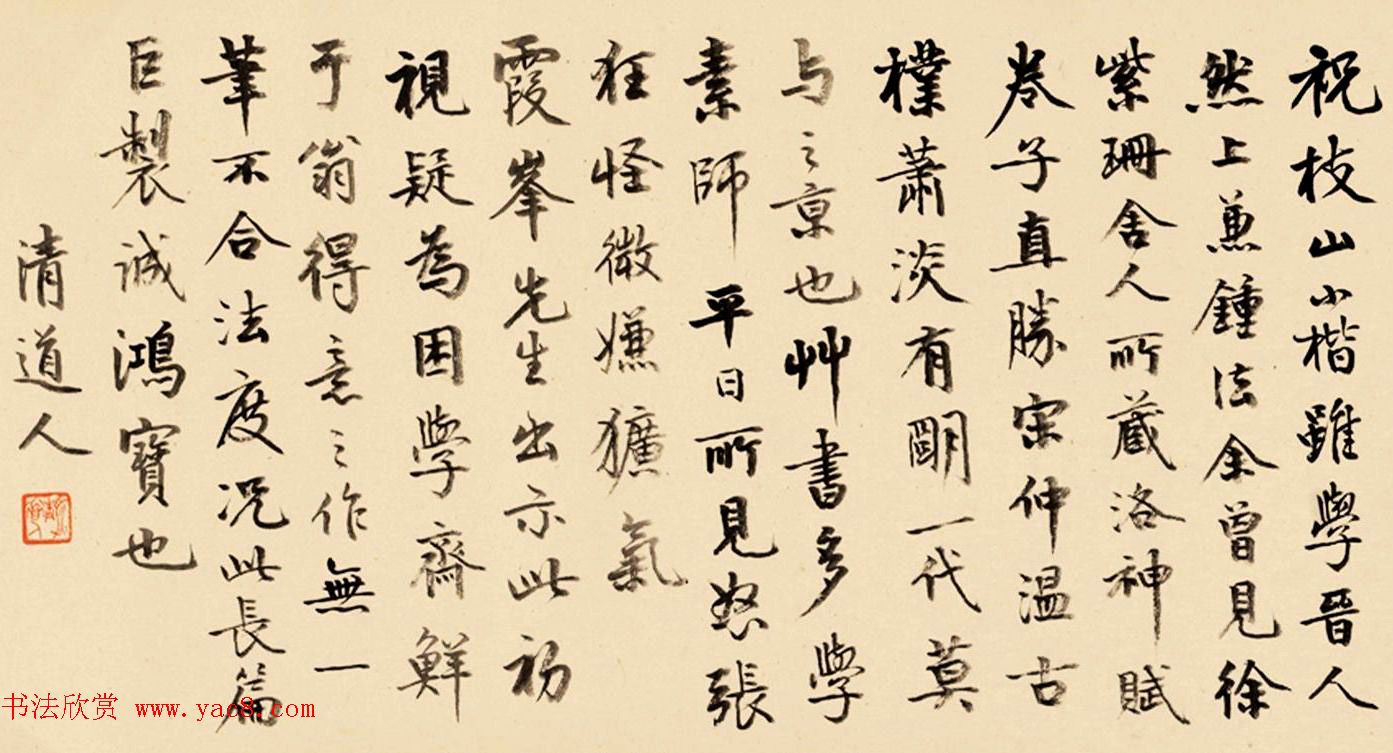 祝枝山小楷雖學晉人
然上兼鍾法余曾見徐
紫珊舍人所藏洛神賦
卷子直勝宋仲温古
樸蕭淡有明一代莫
与之京也艸書多學
素師平日所見怒張
狂怪微嫌獷氣
霞峯先生出示此初
視疑為困學齋鮮
于翁得意之作無一
筆不合法度况此長篇
巨製誠鴻寶也
清道人
书法欣赏 www.yac8.com